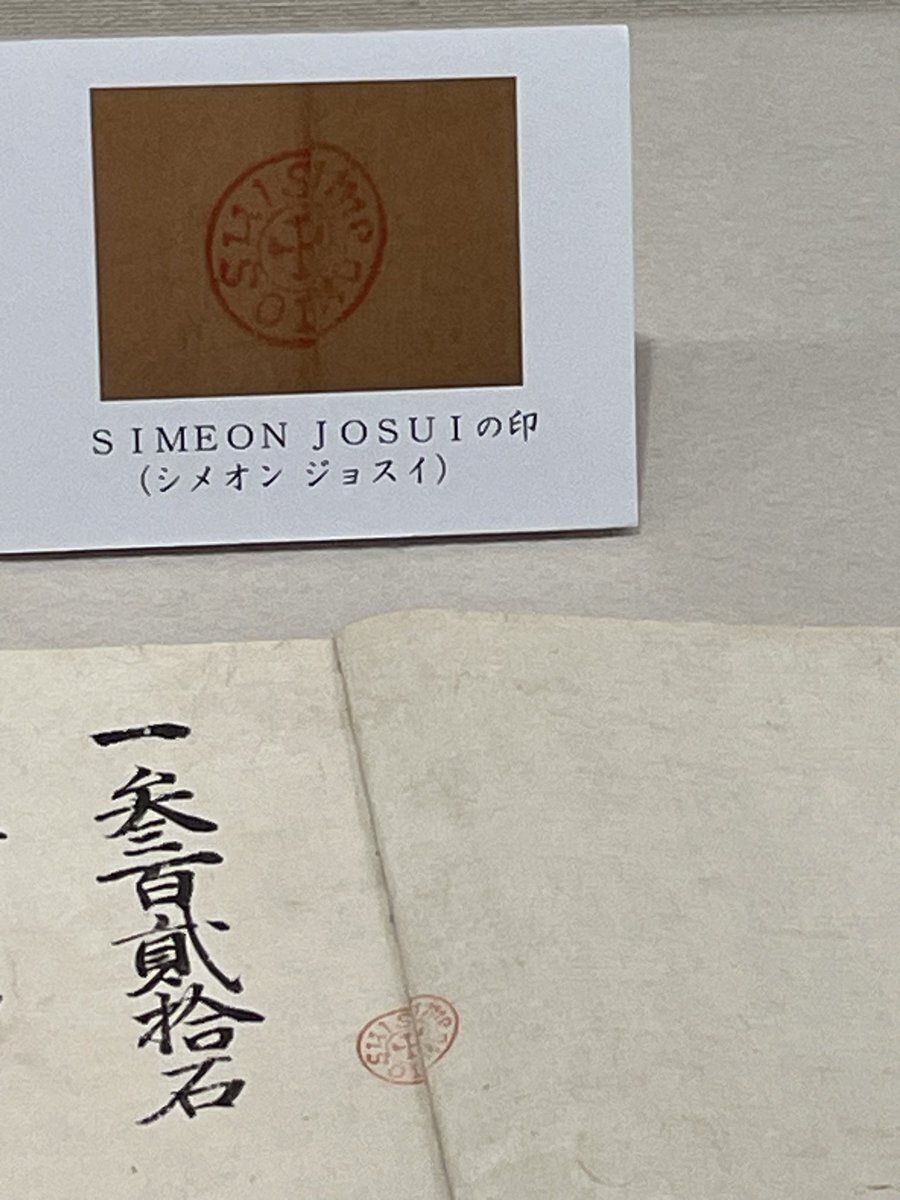 SIMEON JOSUIの印
(シメオン ジョスイ)
一叁百貳拾石